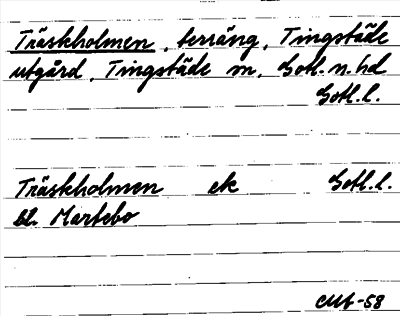 Träskholmen, terräng, Tingstäde
utgård, Tingstäde sn, Gotl. n. hd
Gotl. l.
Träskholmen ek Gotl. l.
bl. Martebo
-58